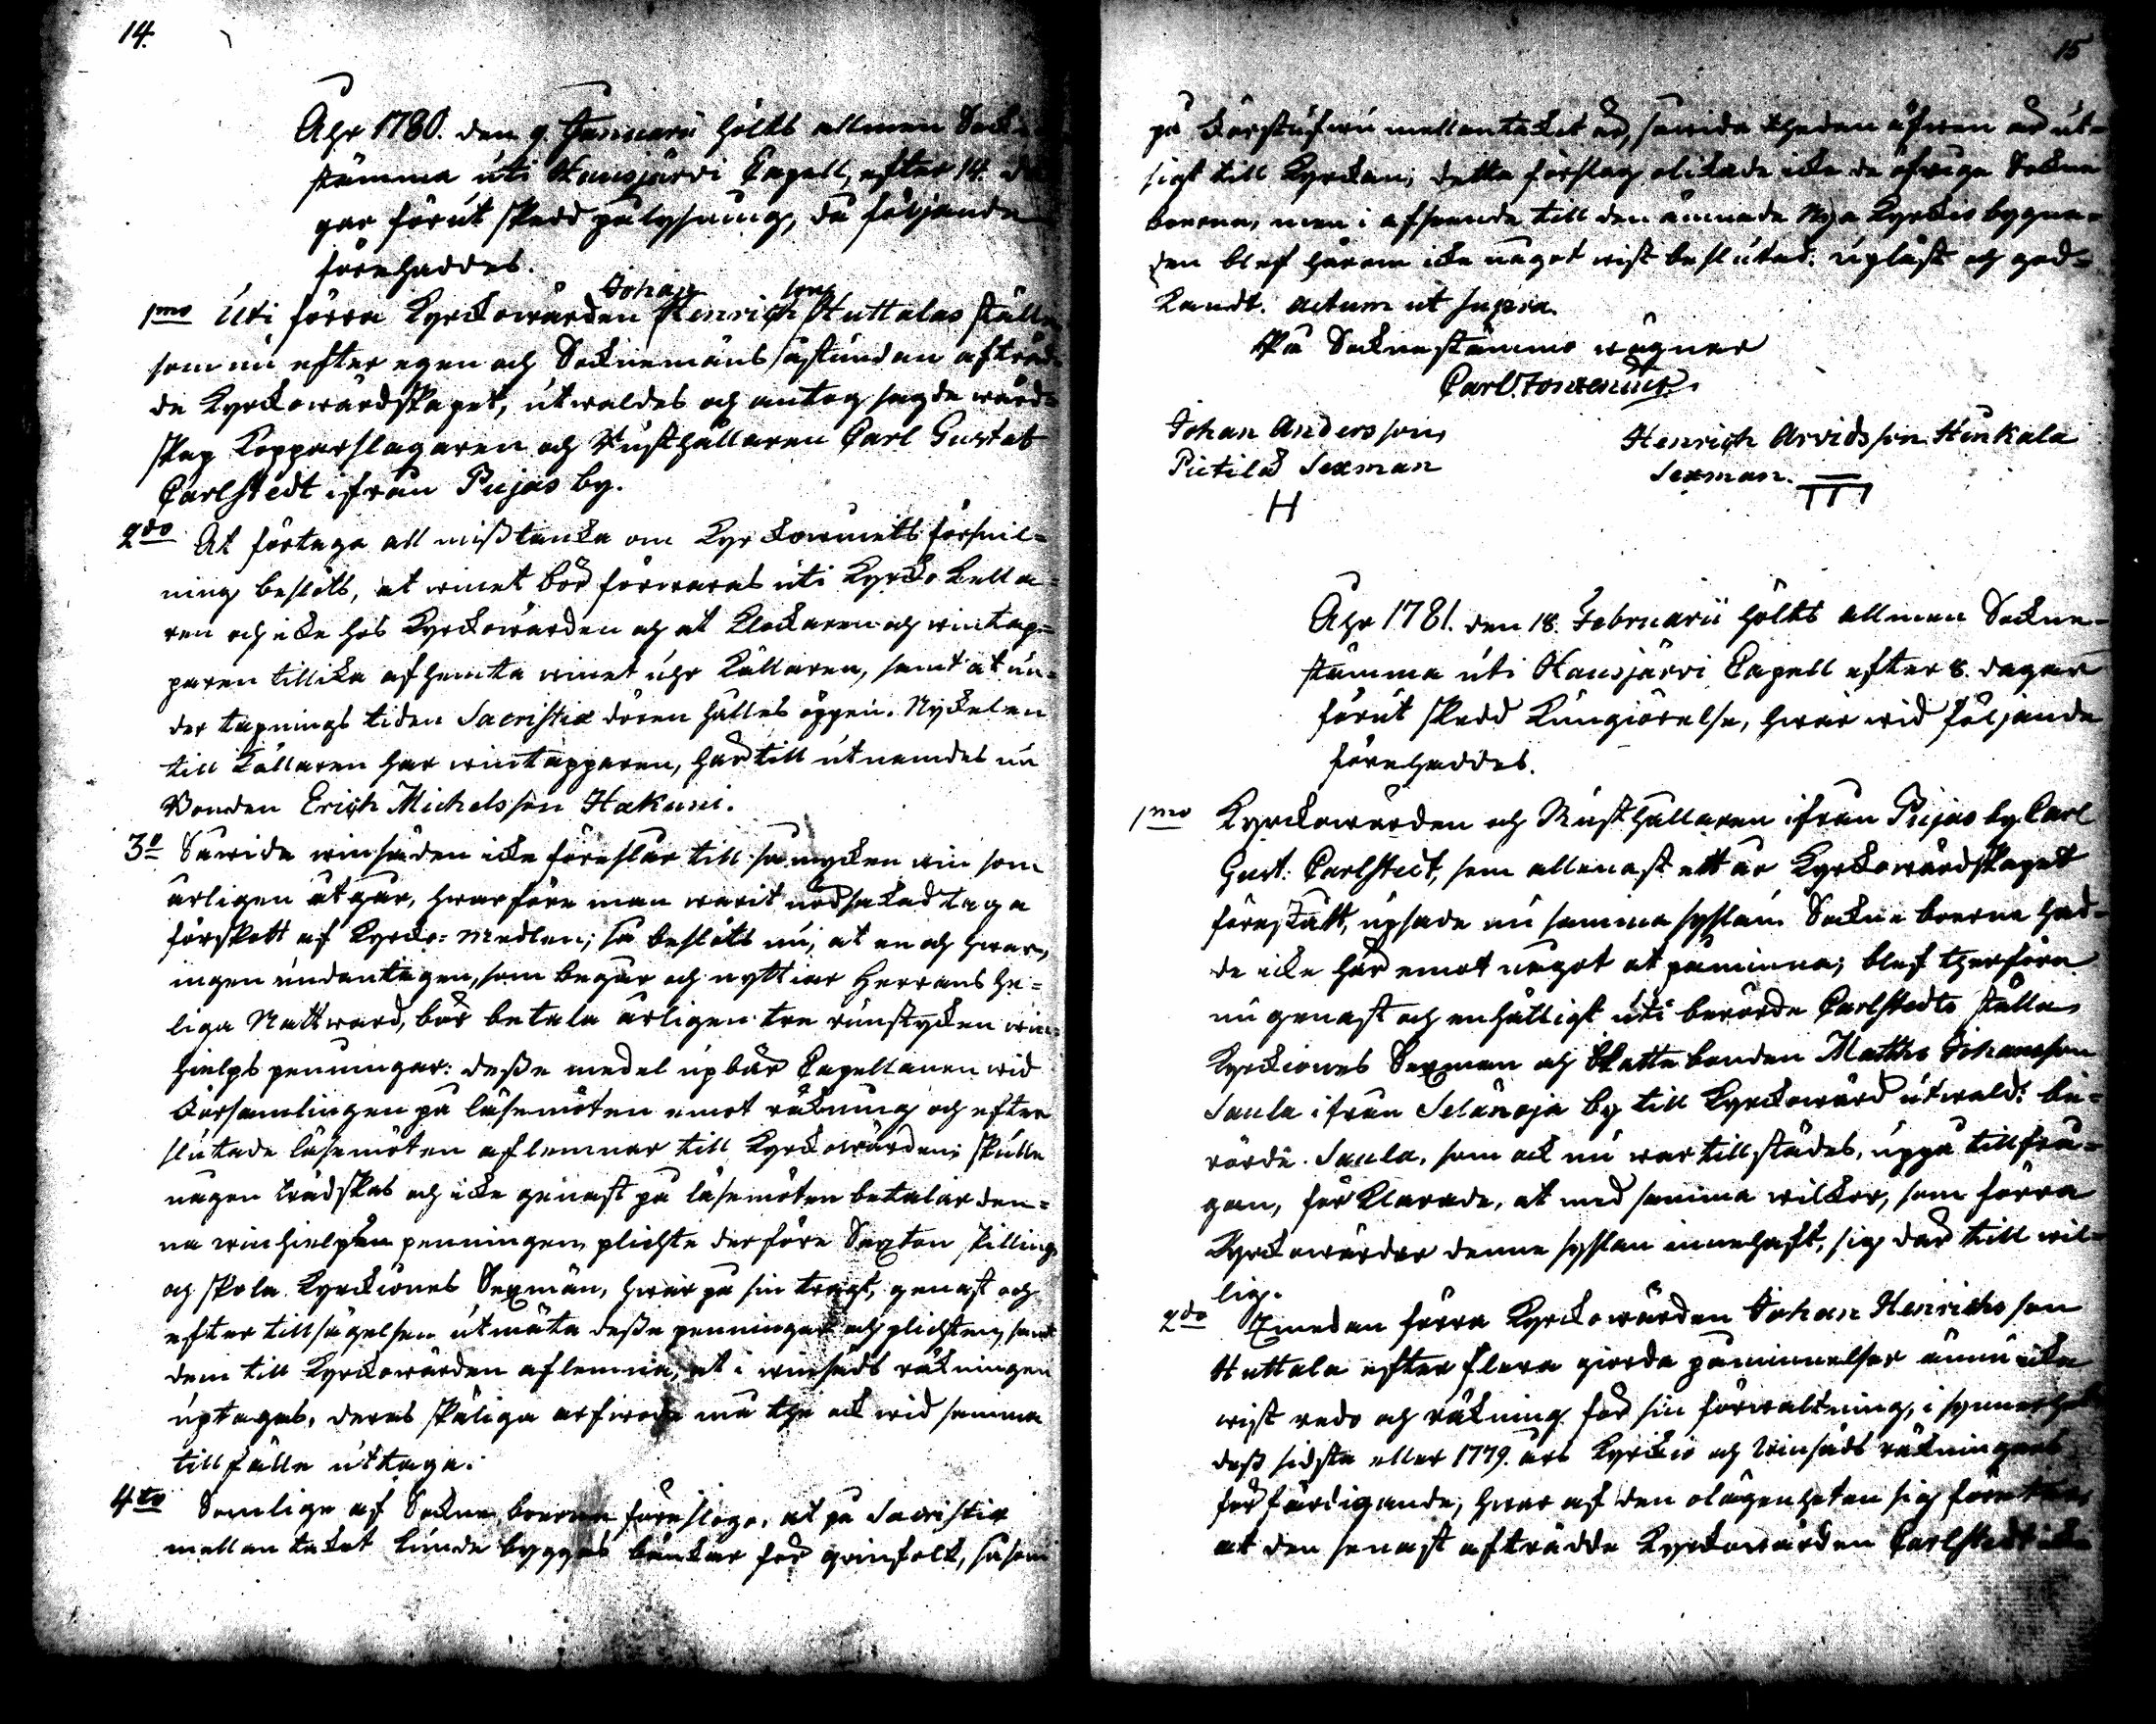 14.
Åhr 1780. den 9. Januarii höltz allmen Sockne
stämma uti Hausjärvi Capell, efter 14. da
gar förut skedd pålysning, då följande
förehaddes.
1mo Uti förra Kyrckiowärden Johan Henrichsson Huttalas ställe
som nu efter egen och Socknemäns åstundan afträd¬
de Kyrckowärdskapet, utwaldes och antog sagde wärd¬
skap Kopparslagaren och Rusthållaren Carl Gustaf
Carlstedt ifrån Pujas by.
2do At förtaga all misstanka om Kyrckowinets förspil¬
ning beslöts, at winet bör förwaras uti Kyrcko Kella¬
ren och icke hos Kyrckowärden och at Klockaren och wintap¬
paren tillika afhemta winet uhr Källaren, samt at un¬
der tapnings tiden Sacristiæ dören hålles öppen. Nyckelen
till Källaren har wintapparen, här till utnemdes nu
Bonden Erich Michelsson Hakuni.
3o Såwida winsäden icke föreslår till så mycken win som
årligen åtgår, hwarföre man warit nödsakad taga
förskott af Kyrcko-medlen; så beslöts nu, at en och hwar,
ingen undantagen, som begår och nyttiar Herrans he¬
liga Nattward, bör betala årligen tre runstycken win¬
hielps penningar: desse medel upbär Capellanen wid
Församlingen på läsemöten emot räkning och efter
slutade läsemöten aflemnar till Kyrckowärden; skulle
någon tredskas och icke genast på läsemöten betalar den¬
na winhielps penningen, plichte derföre Sexton skilling
och skola Kyrckiones Sexmän, hwar på sin tragt, genast och
efter tillsägelsen utmäta desse penningar och plichten, samt
dem till Kyrckowärden aflemna, at i winsäds räkningen
uptagas, deras skäliga arfwode må the ock wid samma
tillfälle uttaga.
4to Somlige af Socknemboerne föreslogo, at på Sacristiæ
mellan taket kunde byggas bänkar för qwinfolk, såsom
15
på Karstufwu mellantaket är, såwida theden äfwen är ut¬
sigt till Kyrckan; detta förslag ölikade icke de öfrige Sockne
boerna, men i afseende till den ämnade Nya Kyrckio bygna¬
den blef härom icke något wist beslutad. upläst och god¬
kändt. actum ut supra.
På Socknestämmo wägnar
Carl Fonzenius.
Johan Andersson
Pietilä Sexman
H
Henrich Arvidsson Hunkala
Sexman.
Åhr 1781. den 18. Februarii höltz allmen Sockne¬
stämma uti Hausjärvi Capell efter 8. dagar
förut skedd Kungiörelse, hwarwid följande
förehaddes.
1mo Kyrckowärden och Rusthållaren ifrån Pujas by Carl
Gust: Carlstedt, som allenast ett år Kyrckowärdskapet
förestått, upsade nu samma syslan. Sockneboerne had¬
de icke här emot något at påminna; blef therföre
nu genast och enhälligt uti berörde Carlstedts ställe
Kyrckiones Sexman och Skattebonden Matths Johansson
Saula ifrån Selänoja by till Kyrckowärd utwald: be¬
rörde Saula, som ock nu war tillstädes, uppå tillfrå¬
gan, förklarade, at med samma wilkor, som förra
Kyrckowärdar denne syslan innehaft, sig där till wil¬
lig.
2do Emedan förra Kyrckowärden Johan Henrichsson
Huttala efter flera giorda påminnelser ännu icke
wist redo och räkning för sin förwaltning, i synnerhet
dess sidsta eller 1779. års Kyrckio och Winsäds räkningars
förfärdigande, hwar af den olägenheten sig
at den senast afträdde Kyrckowärden Carlstedt icke